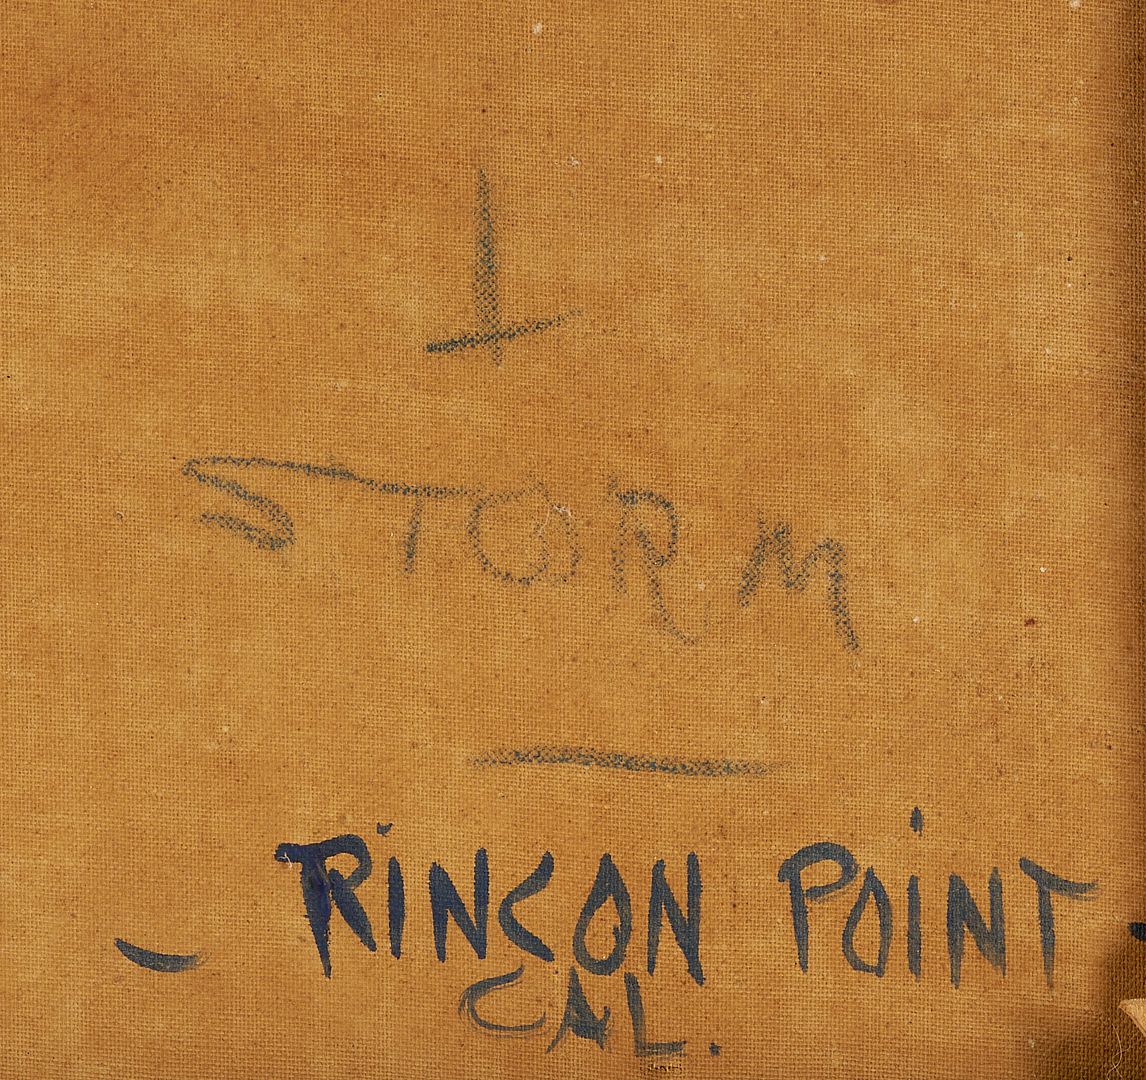 STORM
— RINCON POINT
CAL.